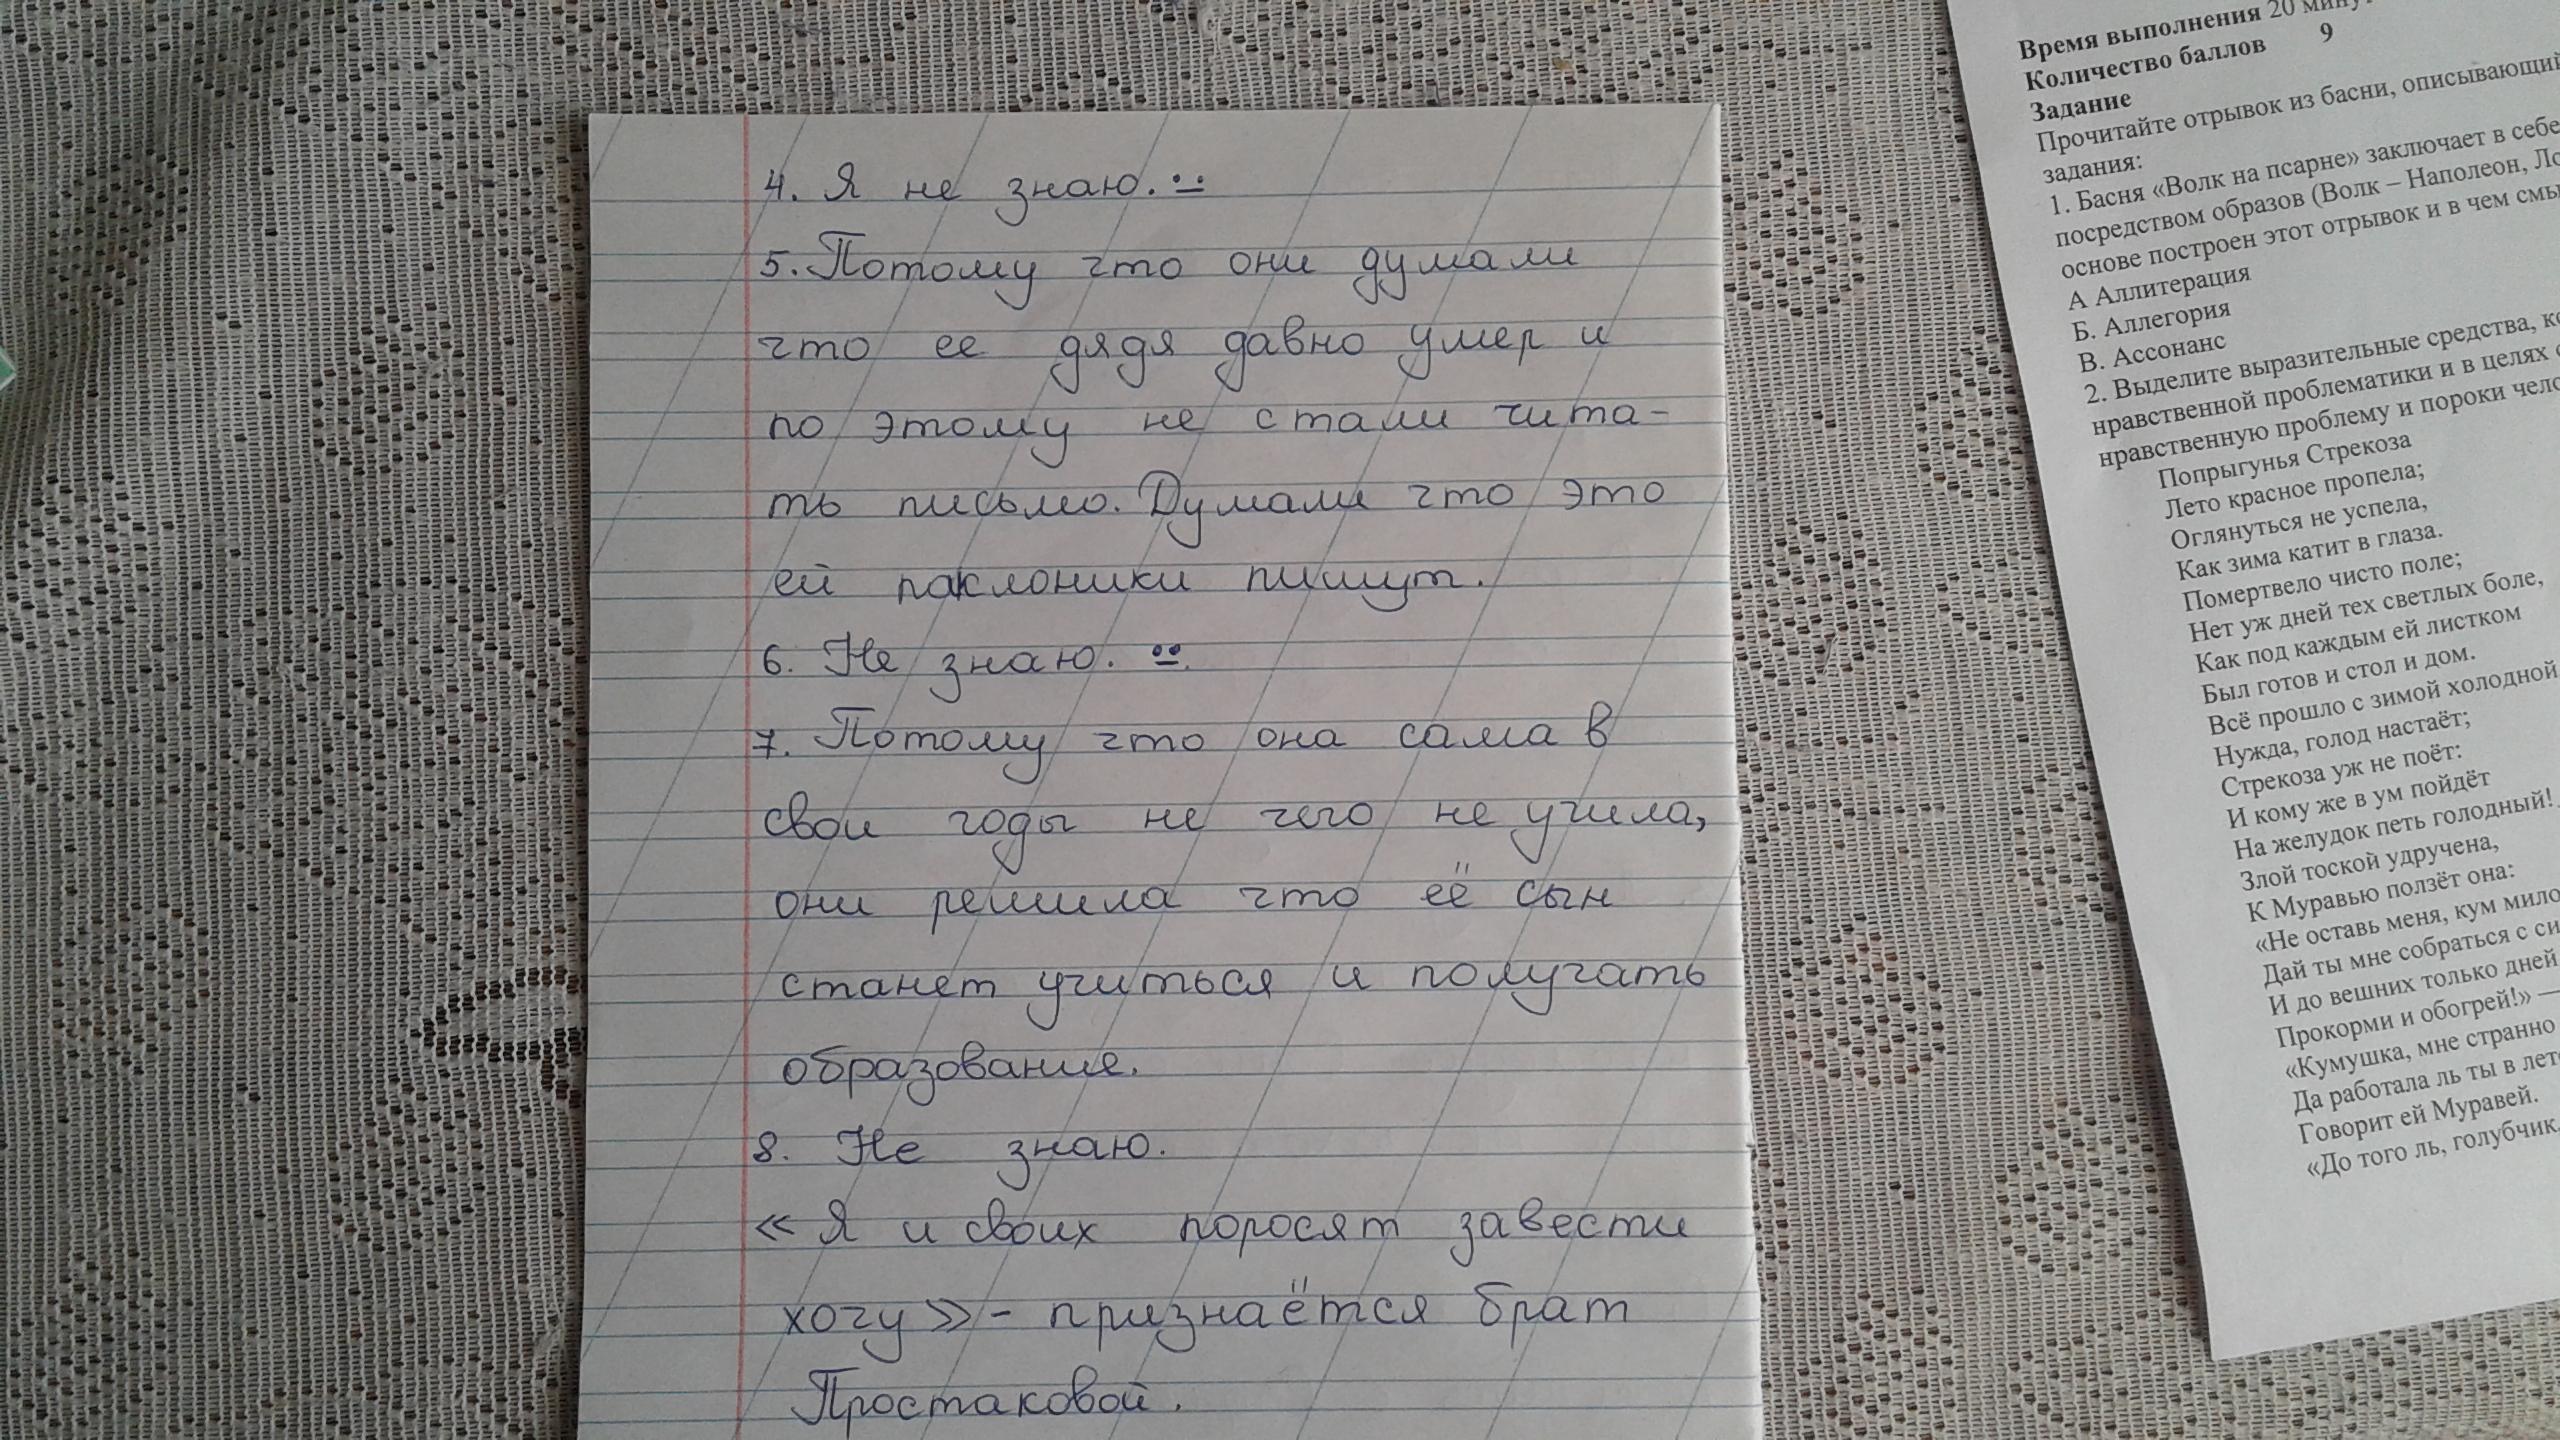 4. Я не знаю.
5. Потому что они думали
что ее дядя давно умер и
по этому не стали чита-
ть письмо. Думали что это
ей паклоники пишут.
6. Не знаю.
7. Потому что она сама в
свои годы не чего не учила,
они решила что её сын
станет учиться и получать
образование.
8. Не знаю.
« Я и своих поросят завести
хочу » - признаётся брат
Простаковой.
Время выполнения 20
Количество баллов 9
Задание
Прочитайте отрывок из басни, описывающий
задания:
1. Басня «Волк на псарне» заключает в себе
посредством образов (Волк – Наполеон,
основе построен этот отрывок и в чем
А Аллитерация
Б. Аллегория
В. Ассонанс
2. Выделите выразительные средства,
нравственной проблематики и в целях
нравственную проблему и пороки
Попрыгунья Стрекоза
Лето красное пропела;
Оглянуться не успела,
Как зима катит в глаза.
Помертвело чисто поле;
Нет уж дней тех светлых боле,
Как под каждым ей листком
Был готов и стол и дом.
Всё прошло с зимой холодной
Нужда, голод настаёт;
Стрекоза уж не поёт:
И кому же в ум пойдёт
На желудок петь голодный!
Злой тоской удручена,
К Муравью ползёт она:
«Не оставь меня, кум
Дай ты мне собраться с
И до вешних только дней
Прокорми и обогрей!» —
«Кумушка, мне странно
Да работала ль ты в
Говорит ей Муравей.
«До того ль, голубчик,